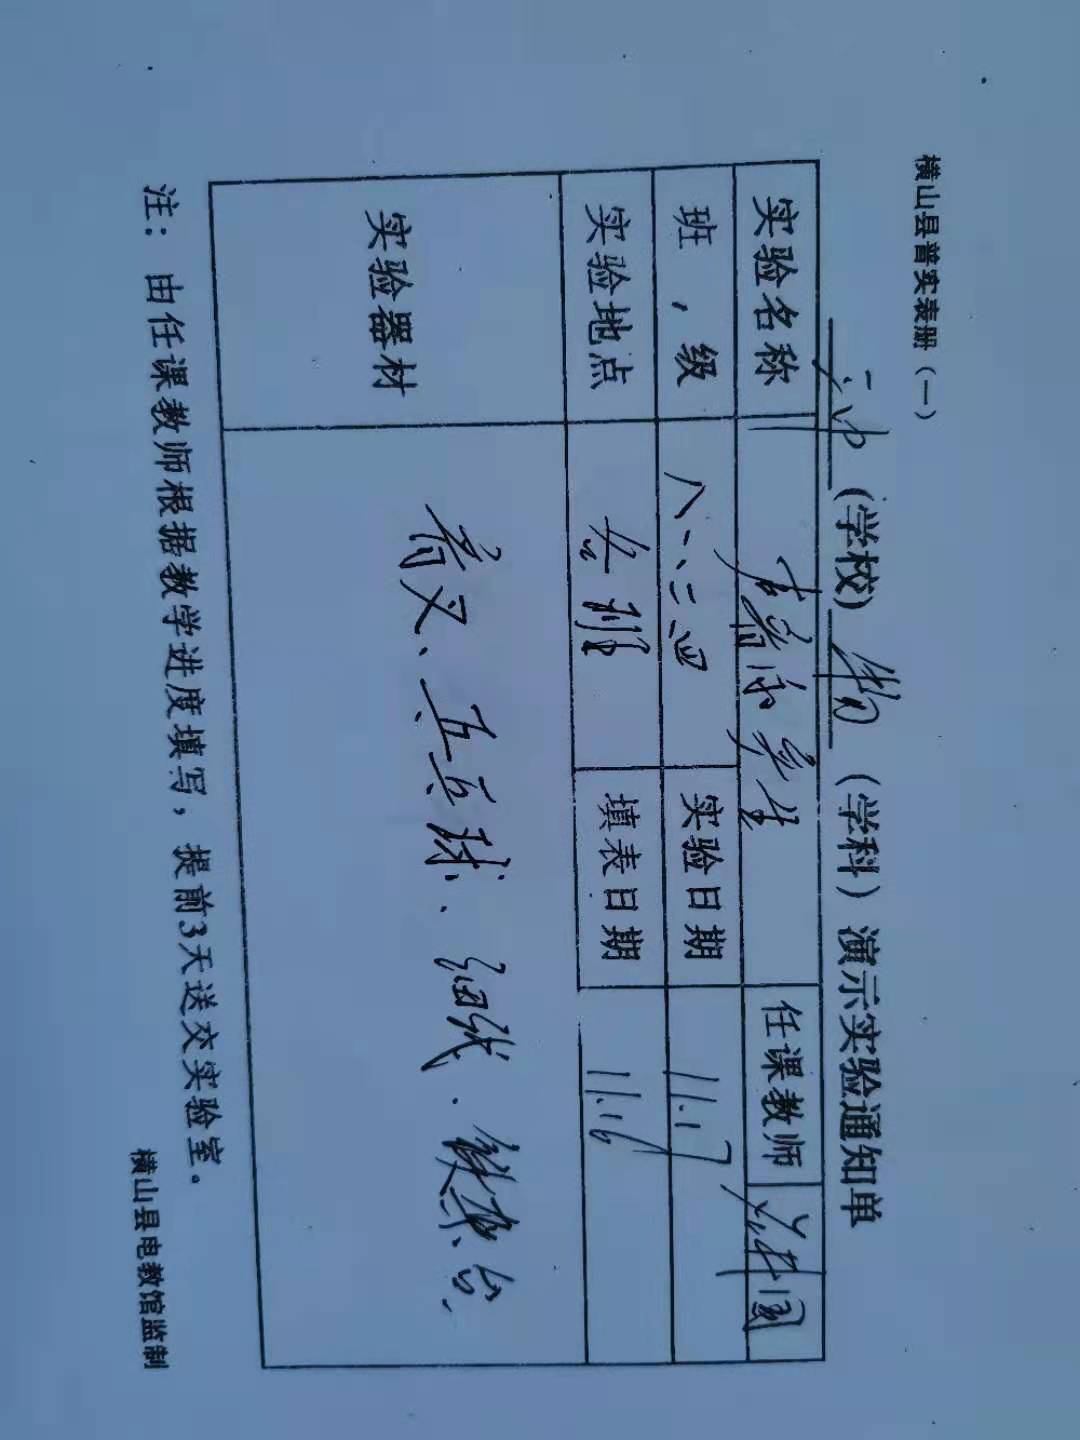 横山县普实表册（一）
三中（学校）物（学科）演示实验通知单
实验名称 声音的产生 任课教师 国
班，级 八、三四 实验日期 11.17
实验地点 各班 填表日期 11.16
实验器材 音叉、乒乓球、细线、铁架台、
注：由任课教师根据教学进度填写，提前3天送交实验室。
横山县电教馆监制